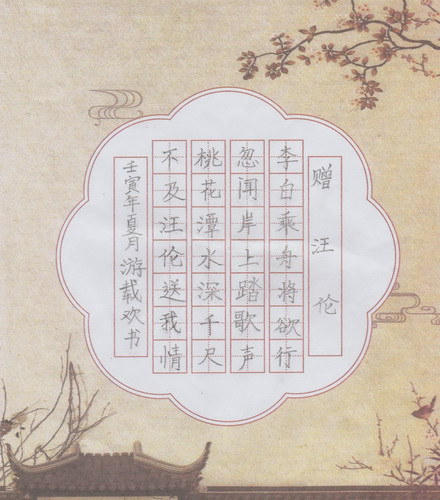 赠汪伦
李白乘舟将欲行
忽闻岸上踏歌声
桃花潭水深千尺
不及汪伦送我情
壬寅年夏月游载欢书